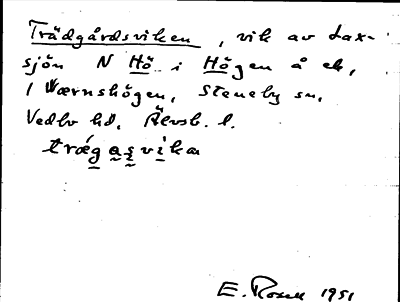 Trädgårdsviken, vik av Lax-
sjön N Hö i Högen å ek,
1 Wærnshögen, Steneby sn,
Vedbo hd. Älvsb. l.
trægasvika
E. Rosell 1951